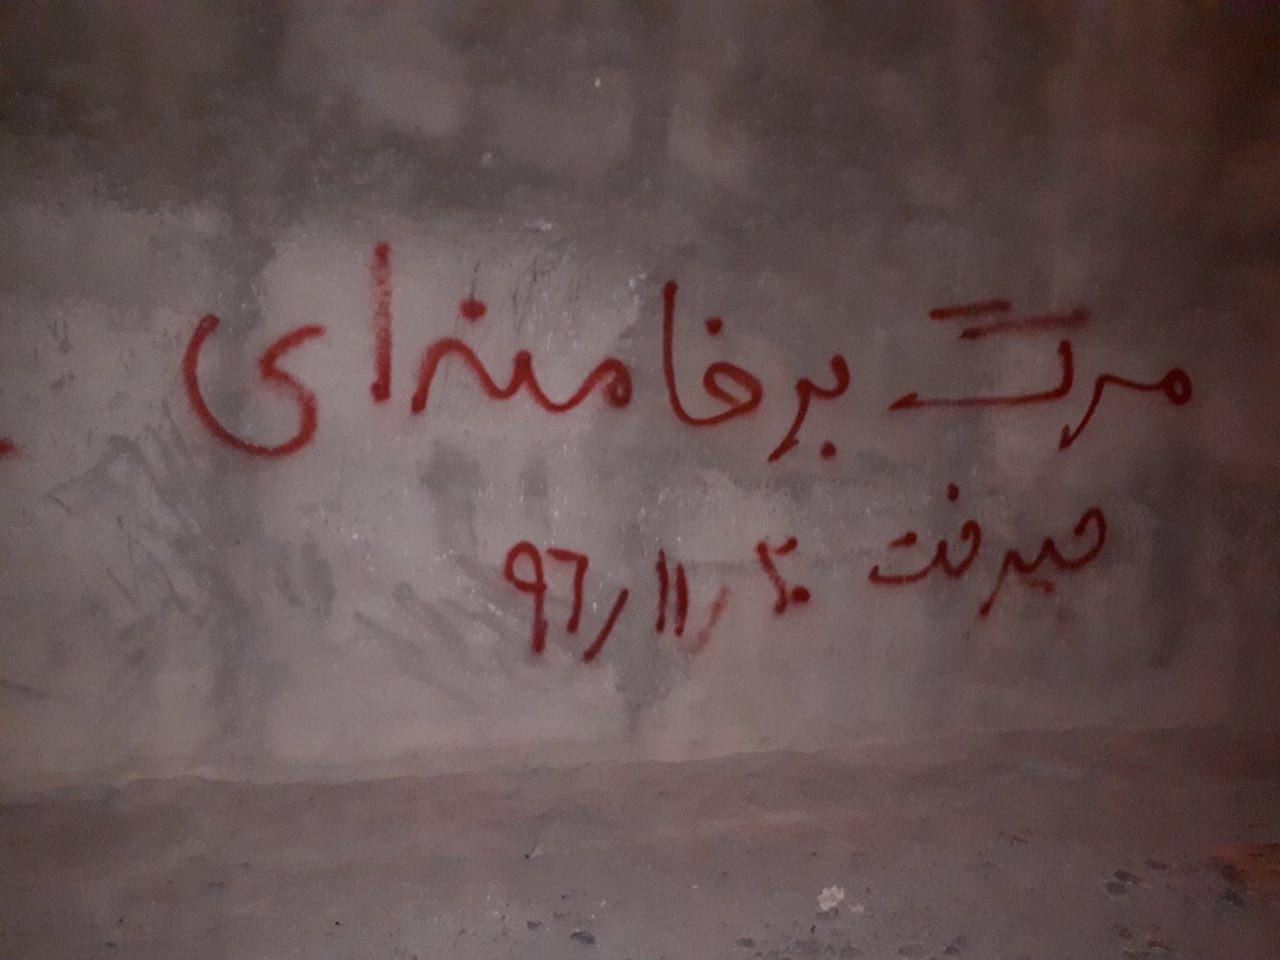 مرگ بر خامنه ای
جیرفت ۹۶/۱۱/۲۰